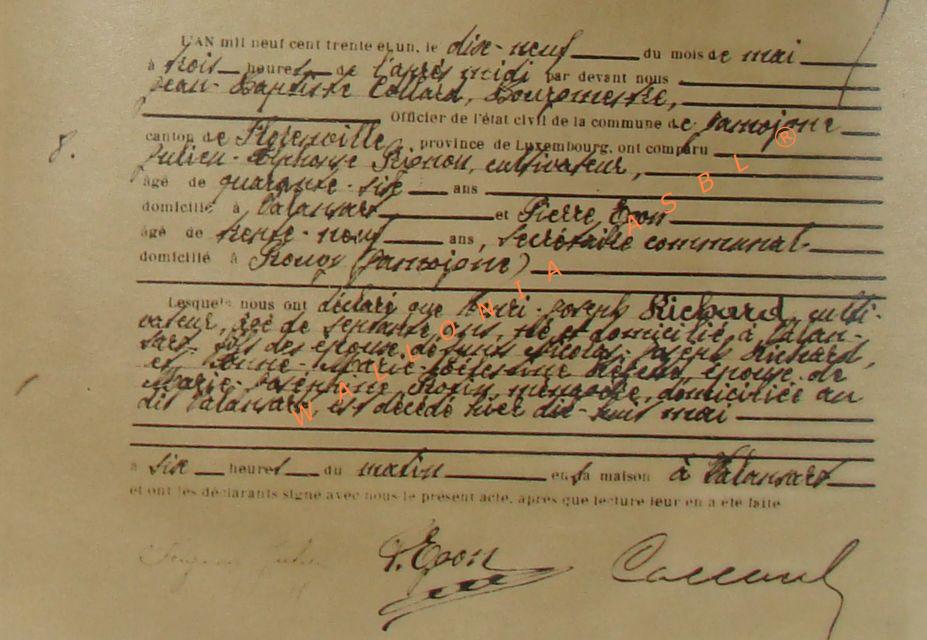 L'AN mil neuf cent trente et un, le dix-neuf du mois de mai
à trois heures de l'après midi par devant nous
Jean-Baptiste Collard, Bourgmestre,
Officier de l'état civil de la commune de Jamoigne
canton de Florenville, province de Luxembourg, ont comparu
8.
Julien-Alphonse cultivateur,
âgé de quarante-six ans
domicilié à Valansart et Pierre Epon
âgé de trente-neuf ans, secrétaire communal
domicilié à Prouvy (Jamoigne)
Lesquels nous ont déclaré que Henri-Joseph Richard, culti-
vateur, âgé de septante ans, né et domicilié à Valan-
sart, fils des époux défunts Nicolas-Joseph Richard,
et Jeanne-Marie- époux de
Marie-Joséphine ménagère, domiciliée au
dit Valansart, est décédé hier dix-huit mai
à six heures du matin en sa maison à Valansart
et ont les déclarants signé avec nous le présent acte, après que lecture leur en a été faite
P. Epon Collard
WALLONIA ASBL ®